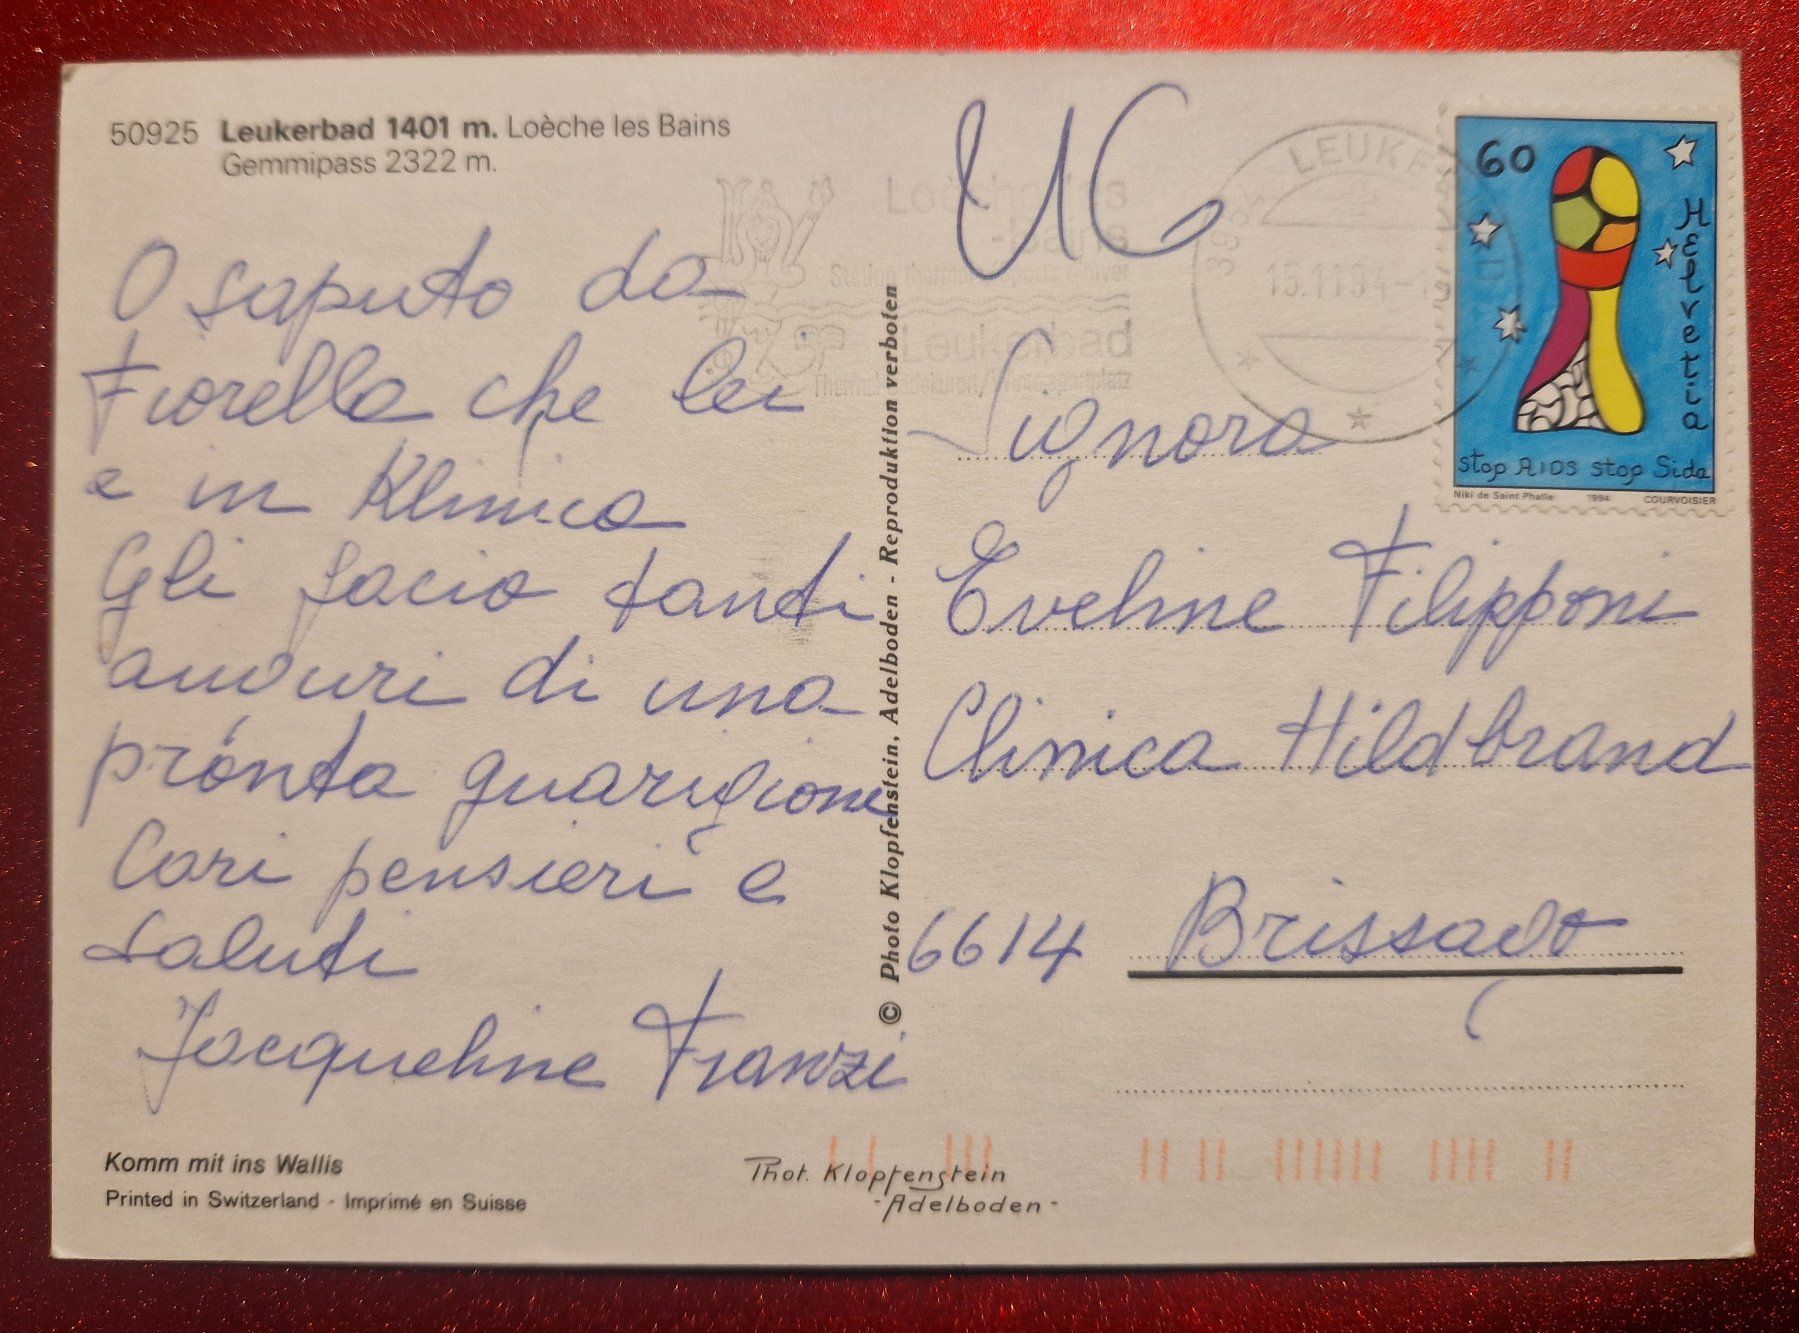 50925 Leukerbad 1401 m. Loèche les Bains
Gemmipass 2322 m.
O saputo da
Fiorella che lei
e in Klinica
Gli facio tanti
auguri di una
pronta guarigione
Cari pensieri e
saluti
Jacqueline Franzi
Komm mit ins Wallis
Printed in Switzerland - Imprimé en Suisse
© Photo Klopfenstein, Adelboden - Reproduktion verboten
Phot. Klopfenstein
- Adelboden -
Loèche les
-Bains
Leukerbad
LEUKERBAD
15.11.94-19
60
Helvetia
Stop AIDS Stop Sida
Niki de Saint Phalle 1994 COURVOISIER
UC
Signora
Eveline Filipponi
Clinica Hildbrand
6614 Brissago